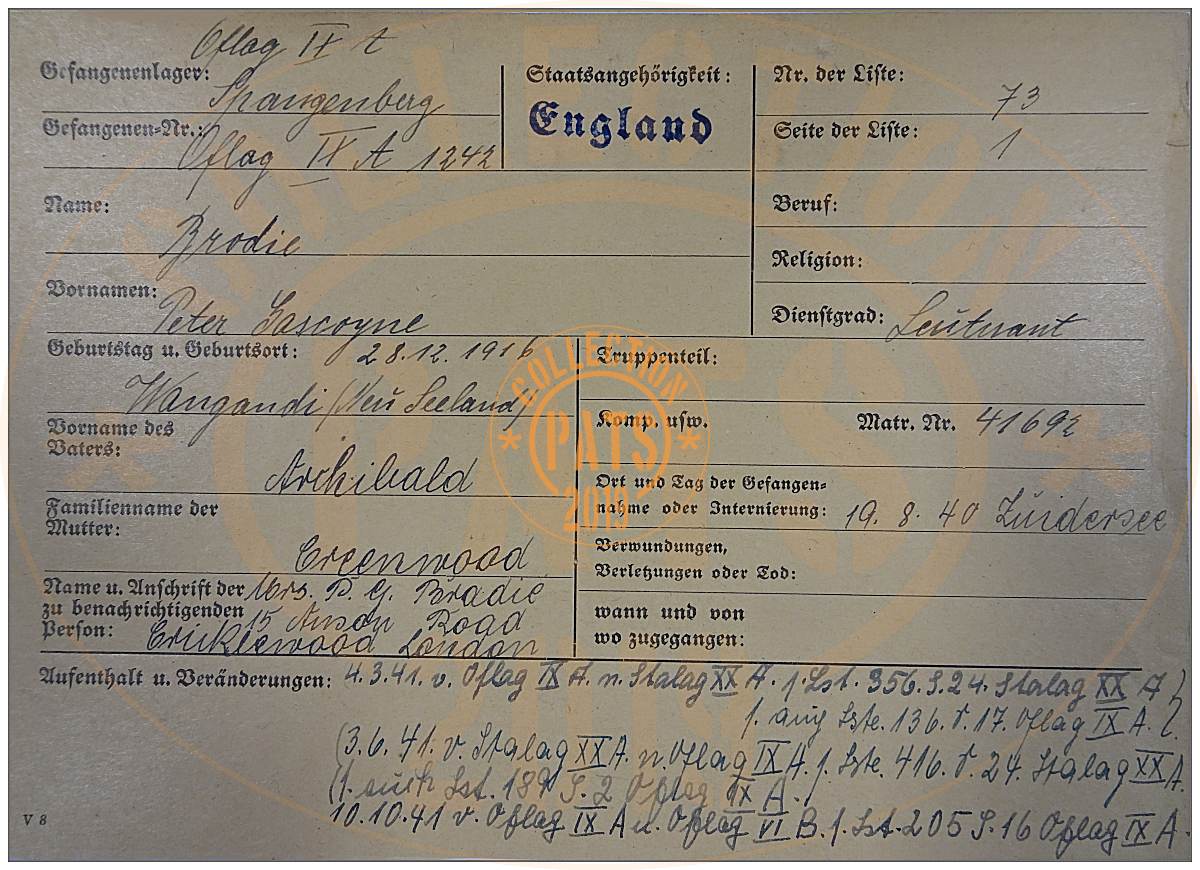 Oflag IX A
Gefangenenlager:
Spangenberg
Gefangenen-Nr.:
Oflag IX A 1242
Staatsangehörigkeit:
England
Nr. der Liste:
73
Seite der Liste:
1
Name:
Brodie
Vornamen:
Peter Gascoyne
Beruf:
Religion:
Dienstgrad: Leutnant
Geburtstag u. Geburtsort: 28.12.1916
Wangandi (Neu Seeland)
Vorname des
Vaters:
Archibald
Familienname der
Mutter:
Greenwood
Name u. Anschrift der Mrs. P. G. Brodie
zu benachrichtigenden 15 Anson Road
Person: Cricklewood London
Truppenteil:
Komp. usw. Matr. Nr. 41692
Ort und Tag der Gefangen-
nahme oder Internierung: 19. 8. 40 Zuidersee
Verwundungen,
Verletzungen oder Tod:
wann und von
wo zugegangen:
COLLECTION
PATS
2019
Aufenthalt u. Veränderungen: 4.3.41. v. Oflag IX A. n. Stalag XX A. l. Lst. 356. S. 24. Stalag XX A
136. S. 17. Oflag IX A.
(3.6.41. v. Stalag XX A. n. Oflag IX A. l. Lste. 416. S. 24. Stalag XX A.
Lst. 189 S. 2 Oflag IX A.
10.10.41 v. Oflag IX A n. Oflag VI B. l. Lst. 205 S. 16 Oflag IX A.
V 8